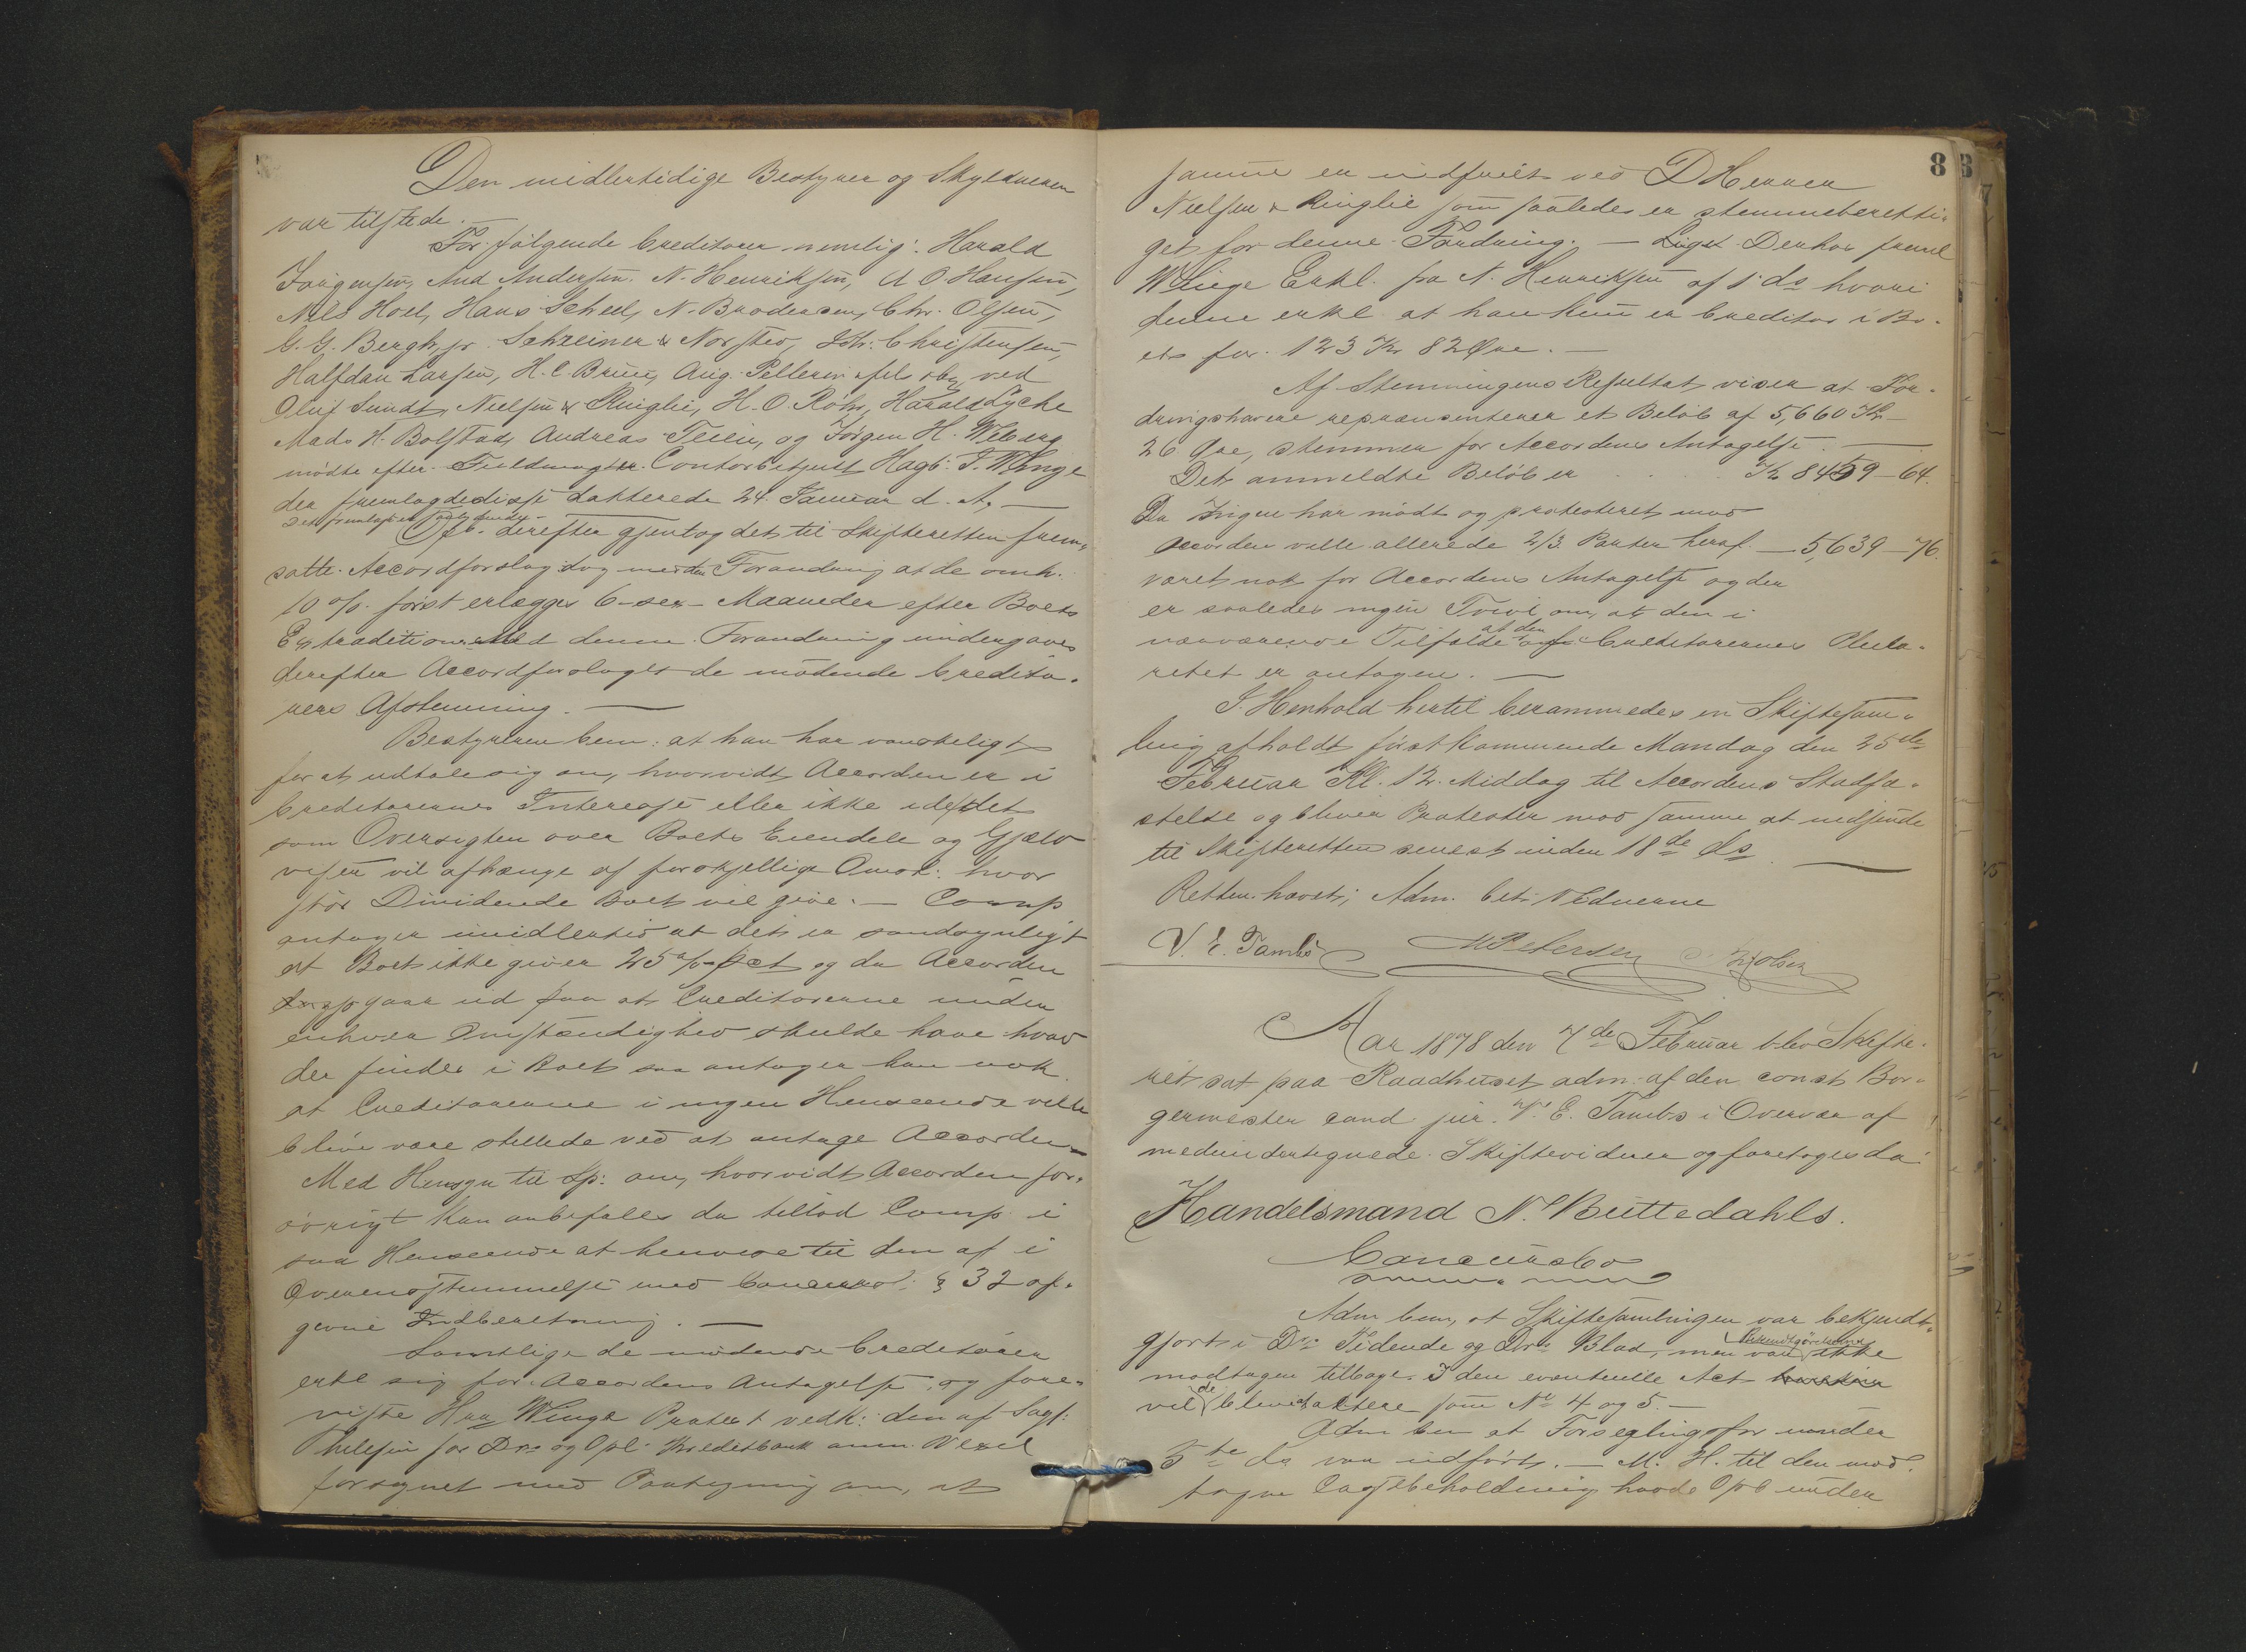 Den midlertidige Bestyrer og Skyldneren
var tilstede. —
For følgende Creditorer nemlig: Harald
Jørgensen, And Andersen. N. Henriksen, A O Hansen,
Nils Hoel, Hans Scheel, N. Brodersen, Chr. Olsen,
G. G. Bergh, jr. Schreiner & Norsted, Joh. Christensen,
Halfdan Larsen, H. C. Bruun, Aug. Pellerin fils & by ved
Oluf Sundt, Nielsen & Ringlie, H. O. Röhr, Harald Lyche
Mads H. Bolstad, Andreas Teien, og Jørgen H. Wiberg
mødte efter Fuldmagter Contorbetjent Hagb. J. Winge
der fremlagde disse datterede 24. Januar d. A. —
Det fremlagte
Opb. derefter gjentog det til Skifteretten frem-
satte Accordforslag dog med den Forandring at de omh.
10 % først erlægges 6-sex-Maaneder efter Boets
Extradition. Med denne Forandring undergaves
derefter Accordforslaget de mødende Credito-
rers Afstemning. —
Bestyreren bem: at han har vanskeligt
for at udtale sig om, hvorvidt Accorden er i
Creditorernes Interesse eller ikke idet det
som Oversigten over Boets Eiendele og Gjæld
viser vil afhænge af forskjellige Omst: hvor
stor Dividende Boet vil give. — Comp
antager imidlertid at det er sandsynligt
at Boet ikke giver 25 % pCt og da Accorden
gaar ud paa at Creditorerne under
enhver Omstændighed skulde have hvad
der findes i Boet saa antager han nok
at Creditorerne i ingen Henseende ville
blive være stillede ved at antage Accorden —
Med Hensyn til Sp: om, hvorvidt Accorden for-
øvrigt kan anbefales da tillod Comp. i
saa Henseende at henvise til den af i
Overensstemmelse med Concursl: § 32 af-
givne Indberetning. —
Samtlige de mødende Creditorer
erkl sig for Accordens Antagelse, og fore-
viste Hrr Winge Protest vedk: den af Sagf:
Thilesen for Drs og Opl. Kreditbank anm. Vexel
forsynet med Paategning om, at
8
samme er indfriet ved D Herrer
Nielsen & Ringlie som saaledes er stemmeberetti-
get for denne Fordring. — Ligel Derhos freml
Winge Erkl. fra N. Henriksen af 1 ds hvori
denne erkl. at han kun er Creditor i Bo-
et for 123 Kr 82 Øre. —
Af Stemningens Resultat viser at For-
dringshavere repræsenterer et Beløb af 5,660 Kr
26 Øre, stemmer for Accordens Antagelse. —
Det anmeldte Beløb er . . . . Kr 8459—64.
Da Ingen har mødt og protesteret mod
Accorden ville allerede 2/3 Parter heraf — 5,639—76.
været nok for Accordens Antagelse og der
er saaledes ingen Tvivl om, at den i
nærværende Tilfælde at den af Creditorernes Plura-
ritet er antagen. —
I Henhold hertil berammedes en Skiftesam-
ling afholdt førstkommende Mandag den 25de
Februar Kl. 12 Middag til Accordens Stadfæ-
stelse og bliver Protester mod samme at indsende
til Skifteretten senest inden 18de ds. —
Retten hævet; Adm. bet. Vidnerne
V. E. Tambs M Petersen Holsen
Aar 1878 den 7de Februar blev Skifte-
ret sat paa Raadhuset adm: af den const Bor-
germester cand. jur. V. E. Tambs i Overvær af
medundertegnede Skiftevidner og foretoges da:
Handelsmand N. Buttedahls.
Concursbo
Adm bem, at Skiftesamlingen var bekjendt-
gjort i Drs Tidende og Drs Blad, men var Bekjendtgjørelserne ikke
modtagen tilbage. I den eventuelle Act
vil de blive at aktere som No 4 og 5. —
Adm bem at Forseglingsfor under
5te ds var udført. — M. H. til den mod-
tagne Cassebeholdning havde Opb under